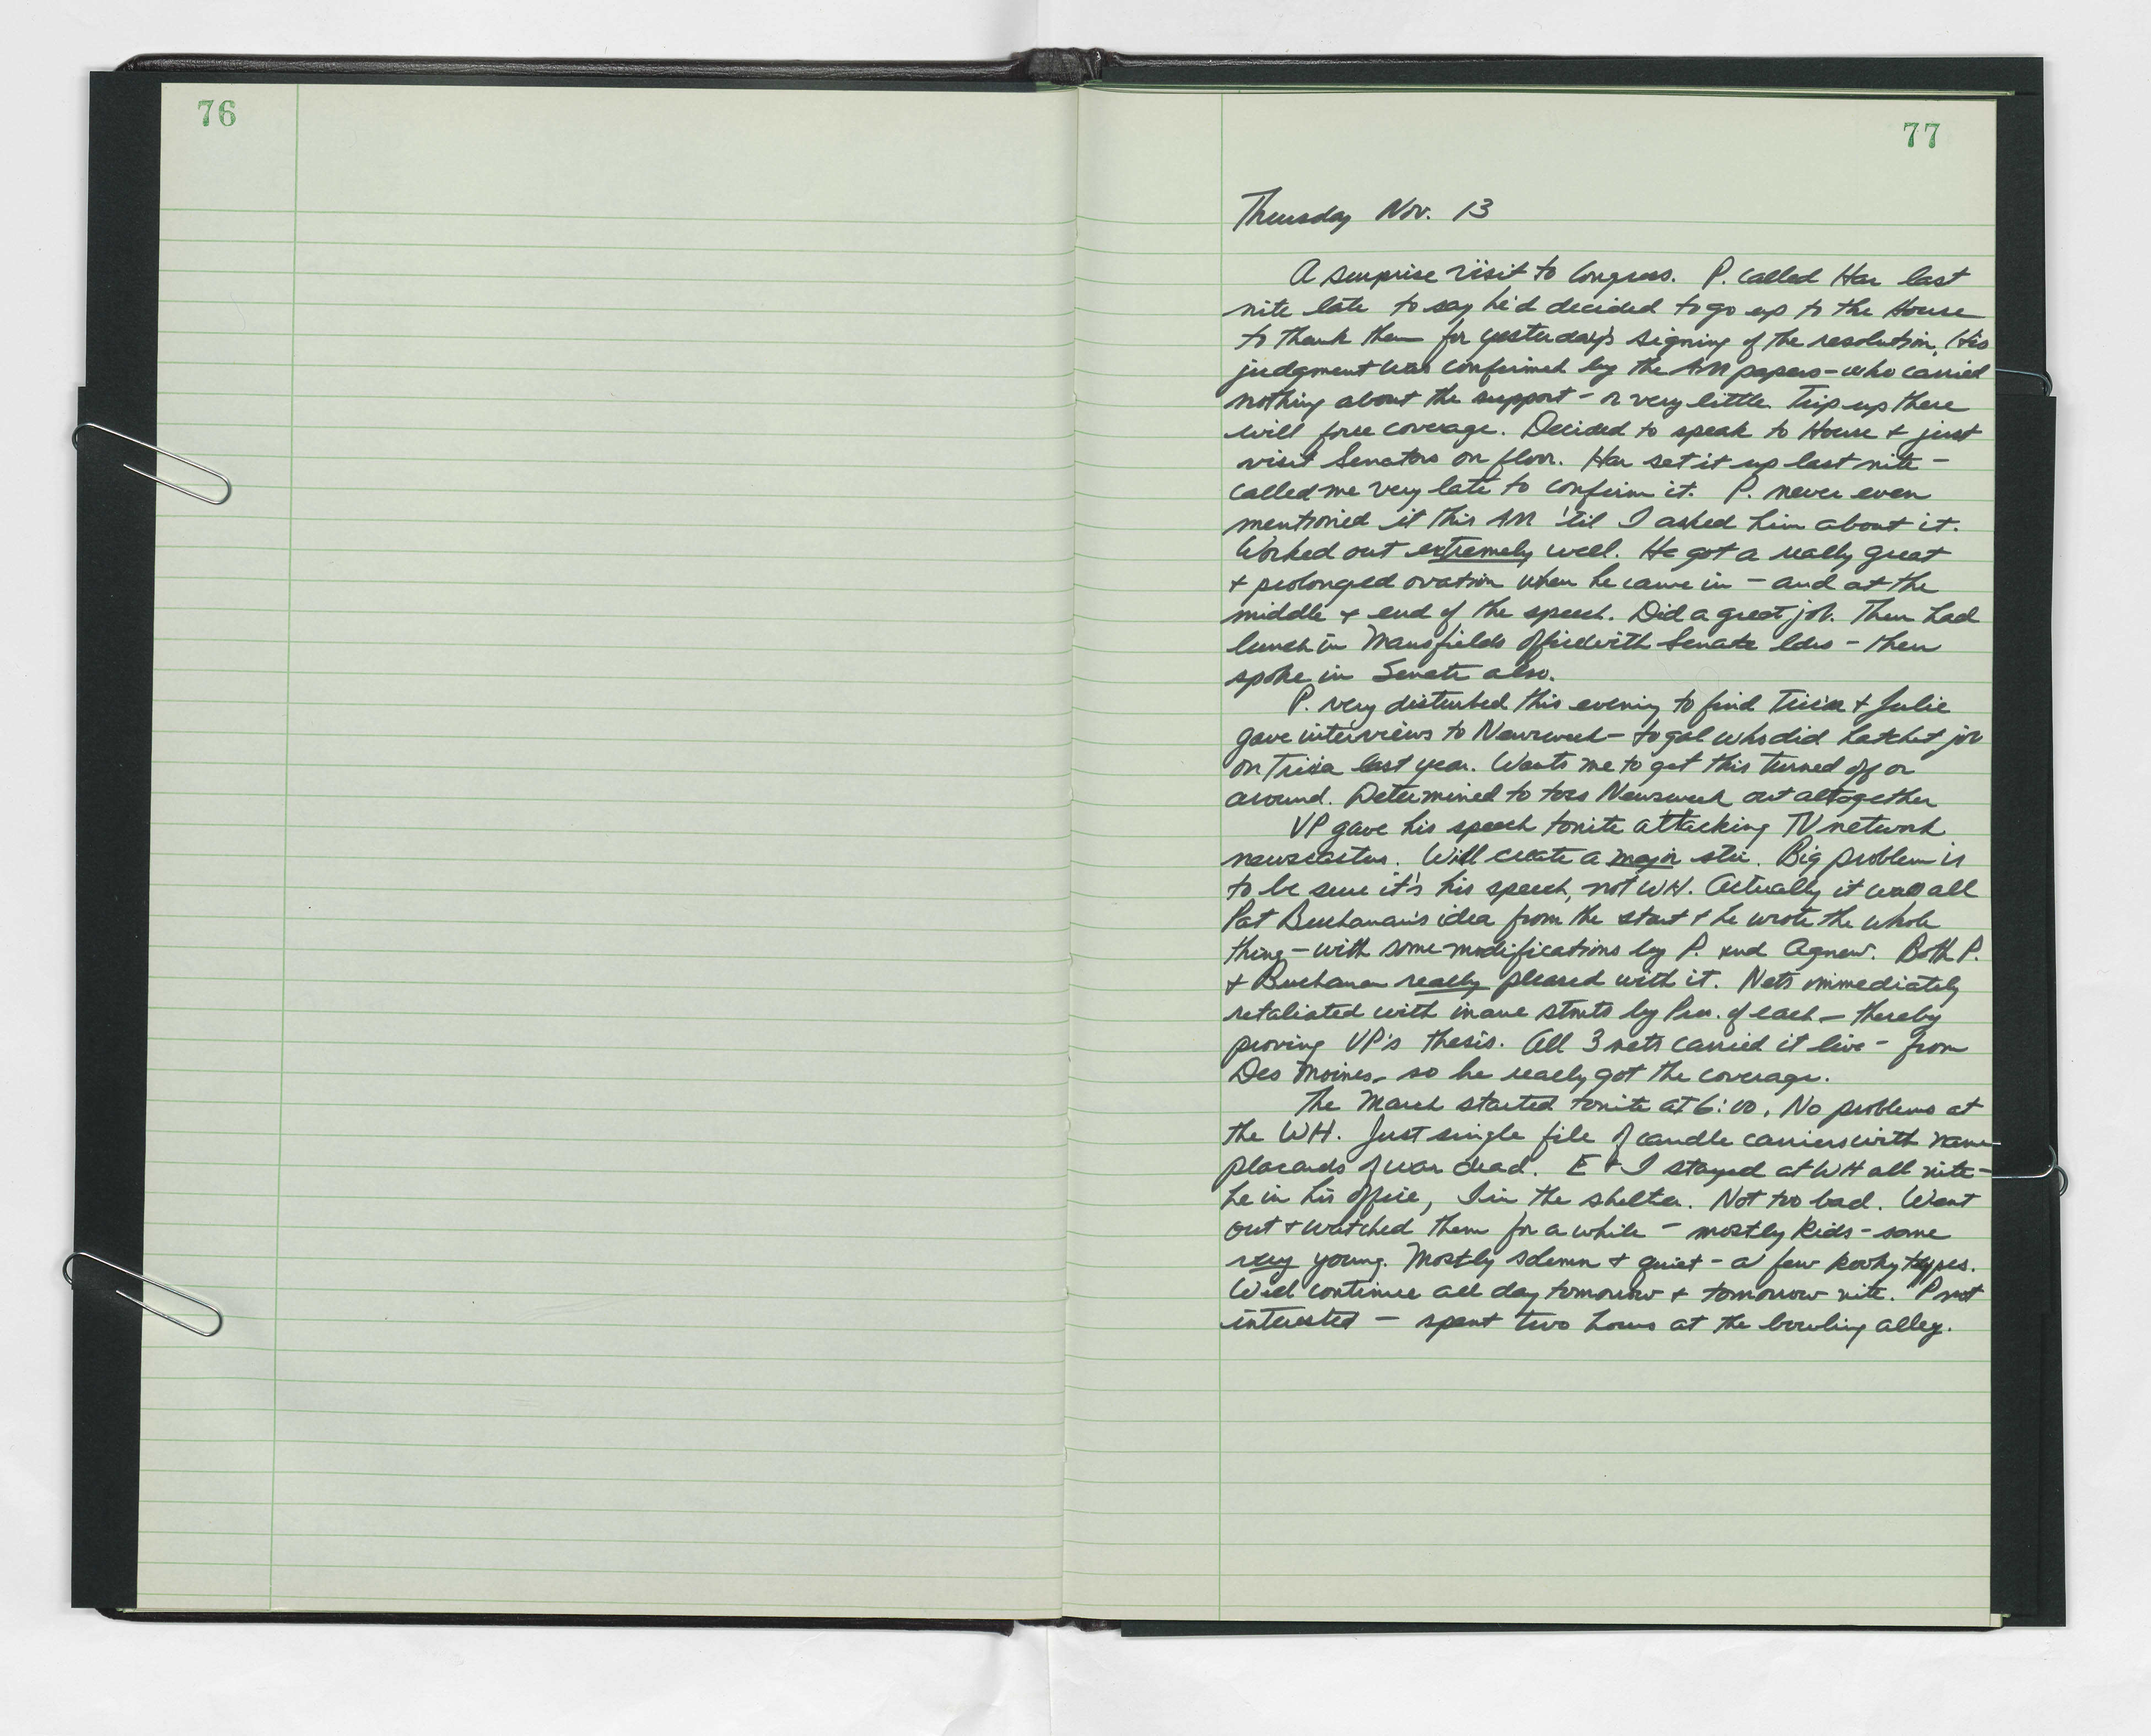 76
77
Thursday Nov. 13
A surprise visit to Congress. P. called Har last
nite late to say he'd decided to go up to the House
to thank them for yesterday's signing of the resolution. His
judgment was confirmed by the AM papers - who carried
nothing about the support - or very little. Trip up there
will force coverage. Decided to speak to House + just
visit Senators on floor. Har set it up last nite -
called me very late to confirm it. P. never even
mentioned it this AM 'til I asked him about it.
Worked out extremely well. He got a really great
+ prolonged ovation when he came in - and at the
middle + end of the speech. Did a great job. Then had
lunch in Mansfields office with Senate ldrs - then
spoke in Senate also.
P. very disturbed this evening to find Tricia + Julie
gave interviews to Newsweek - to gal who did hatchet job
on Tricia last year. Wants me to get this turned off or
around. Determined to toss Newsweek out altogether
VP gave his speech tonite attacking TV network
newscasters. Will create a major stir. Big problem is
to be sure it's his speech, not WH. Actually it was all
Pat Buchanan's idea from the start + he wrote the whole
thing - with some modifications by P. and Agnew. Both P.
+ Buchanan really pleased with it. Nets immediately
retaliated with inane stmts by Pres. of each - thereby
proving VP's thesis. All 3 nets carried it live - from
Des Moines - so he really got the coverage.
The March started tonite at 6:00. No problems at
the WH. Just single file of candle carriers with name
placards of war dead. E + I stayed at WH all nite -
he in his office, I in the shelter. Not too bad. Went
out + watched them for a while - mostly kids - some
very young. Mostly solemn + quiet - a few kooky types.
Will continue all day tomorrow + tomorrow nite. P not
interested - spent two hours at the bowling alley.